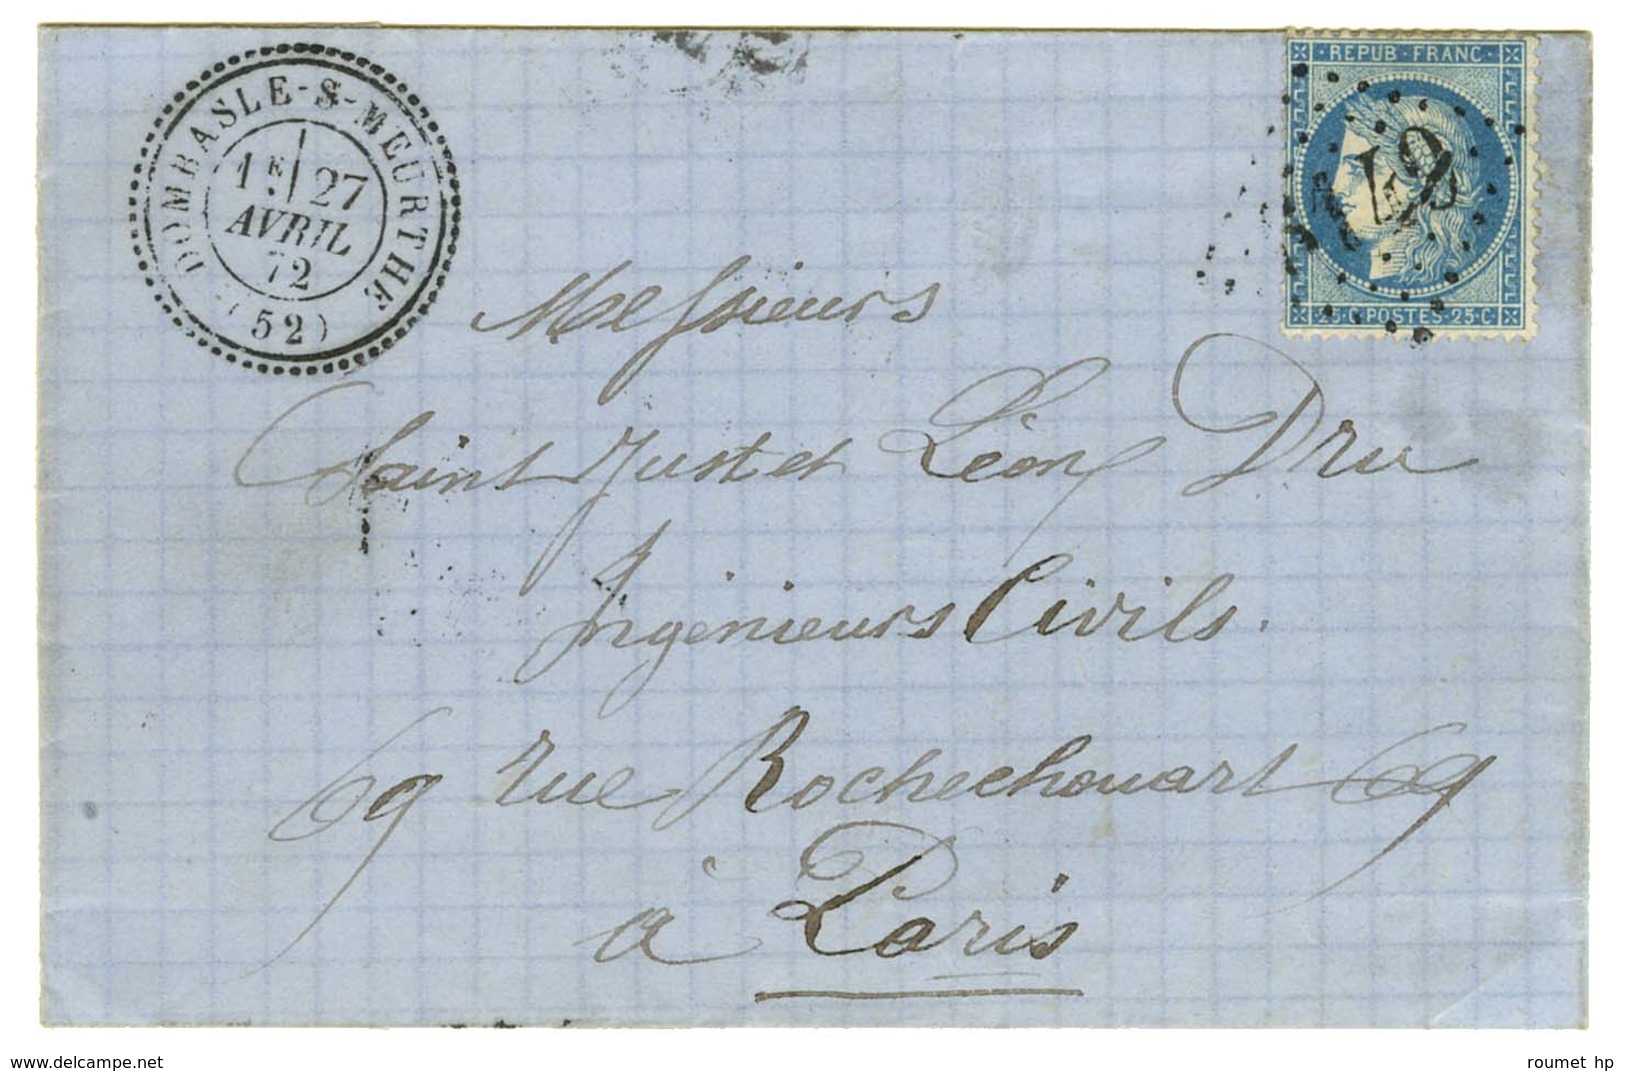 DOMBASLE-S-MEURTHE
1E 27
AVRIL
72
(52)
REPUB·FRANC·
25·C POSTES·25·C
Messieurs
Saint Just et Léon Dru
Ingénieurs Civils.
69 rue Rochechouart 69
à Paris
www.delcampe.net
roumet hp